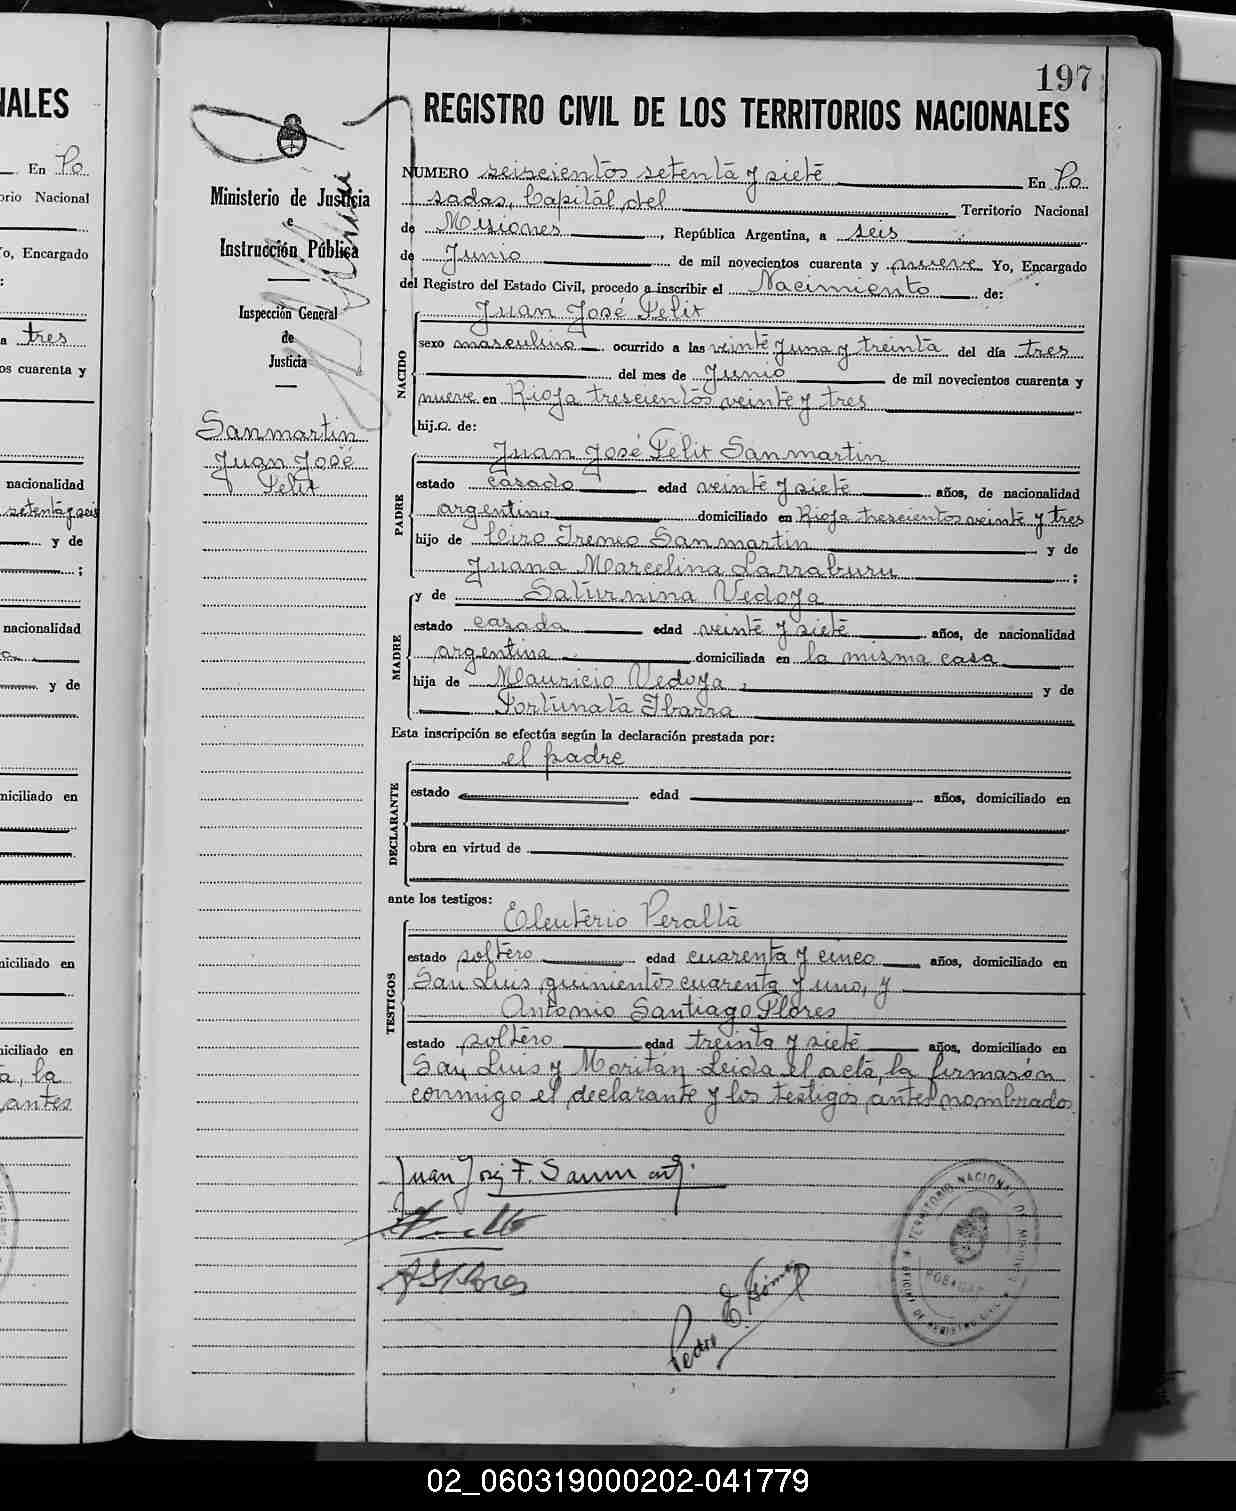 NALES
En Po
orio Nacional
Yo, Encargado
:
a tres
os cuarenta y
nacionalidad
setenta y seis
y de
;
nacionalidad
y de
niciliado en
niciliado en
niciliado en
la
antes
197
REGISTRO CIVIL DE LOS TERRITORIOS NACIONALES
Ministerio de Justicia
e
Instrucción Pública
Inspección General
de
Justicia
Sanmartin
Juan José
Felix
NUMERO seiscientos setenta y siete En Po
sadas, Capital del Territorio Nacional
de Misiones, República Argentina, a seis
de Junio de mil novecientos cuarenta y nueve Yo, Encargado
del Registro del Estado Civil, procedo a inscribir el Nacimiento de:
NACIDO
Juan José Felix
sexo masculino ocurrido a las veinte y una y treinta del día tres
del mes de Junio de mil novecientos cuarenta y
nueve en Rioja trescientos veinte y tres
hij.o. de:
PADRE
Juan José Felix Sanmartin
estado casado edad veinte y siete años, de nacionalidad
argentino domiciliado en Rioja trescientos veinte y tres
hijo de Ciro Ireneo Sanmartin y de
Juana Marcelina Larraburu ;
MADRE
y de Saturnina Vedoya
estado casada edad veinte y siete años, de nacionalidad
argentina domiciliada en la misma casa
hija de Mauricio Vedoya, y de
Fortunata Ibarra
Esta inscripción se efectúa según la declaración prestada por:
DECLARANTE
el padre
estado edad años, domiciliado en
obra en virtud de
ante los testigos:
TESTIGOS
Eleuterio Peralta
estado soltero edad cuarenta y cinco años, domiciliado en
San Luis quinientos cuarenta y uno, y
Antonio Santiago Flores
estado soltero edad treinta y siete años, domiciliado en
San Luis y Moritán Leida el acta, la firmarón
conmigo el declarante y los testigos antes nombrados
Juan José F. Sanmartin
A S Flores
Pedro E. Gómez
TERRITORIO NACIONAL DE MISIONES
POSADAS
OFICINA DE REGISTRO CIVIL
02_060319000202-041779